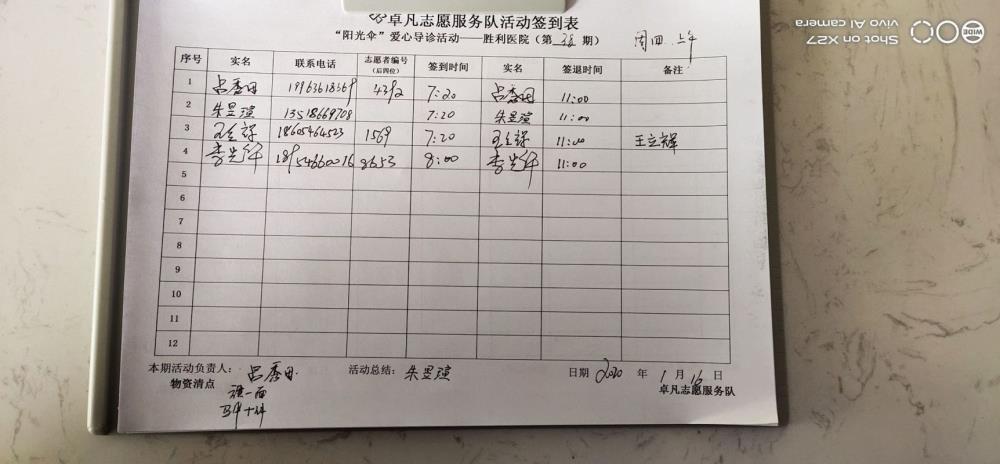 卓凡志愿服务队活动签到表
“阳光伞”爱心导诊活动——胜利医院（第 期） 周四 上午
序号 实名 联系电话 志愿者编号（后四位） 签到时间 实名 签退时间 备注
1 吕秀田 19963618369 4392 7:20 吕秀田 11:00
2 朱昱瑄 13518669708 7:20 朱昱瑄 11:00
3 王立辉 18605464523 1569 7:20 王立辉 11:00 王立辉
4 李光 18954660016 8653 8:00 李光 11:00
5
6
7
8
9
10
11
12
本期活动负责人： 吕秀田 活动总结： 朱昱瑄 日期 2020 年 1 月 16 日
物资清点 卓凡志愿服务队
旗一面
马甲十件
Shot on X27
vivo AI camera